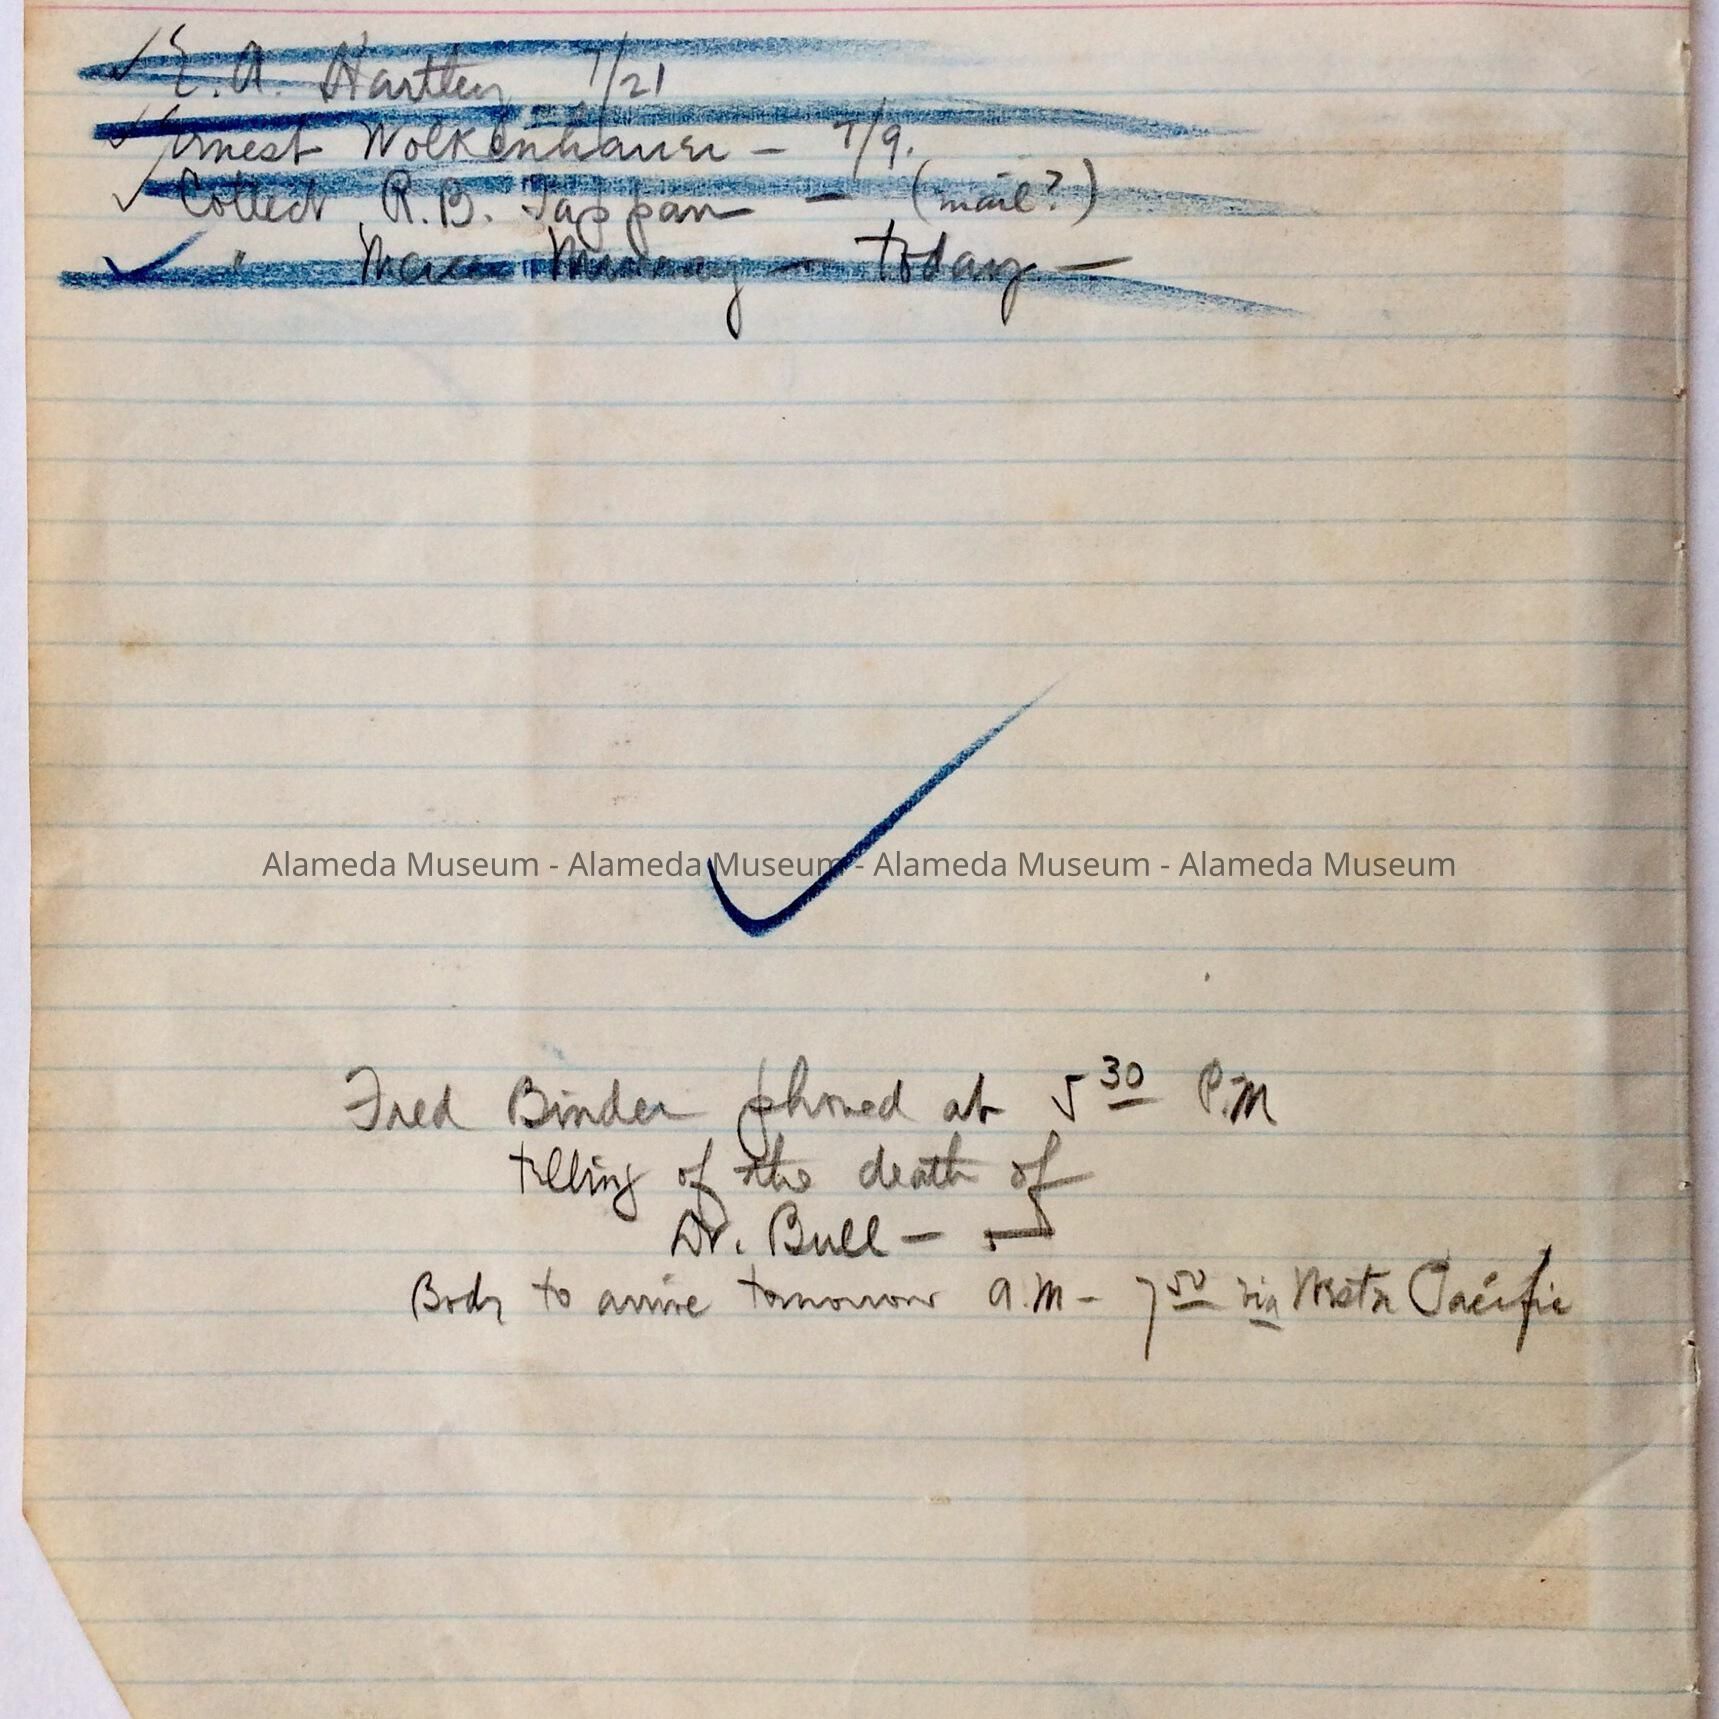 ✓ E. A. Hartley 7/21
✓ Ernest Wolkenhauer – 7/9.
✓ Collect R.B. Tappan – (mail?)
✓ " Murray – today –
Alameda Museum - Alameda Museum - Alameda Museum - Alameda Museum
Fred Binder phoned at 5 30 P.M
telling of the death of
Dr. Bull –
Body to arrive tomorrow A.M – 7 50 via Westn Pacific